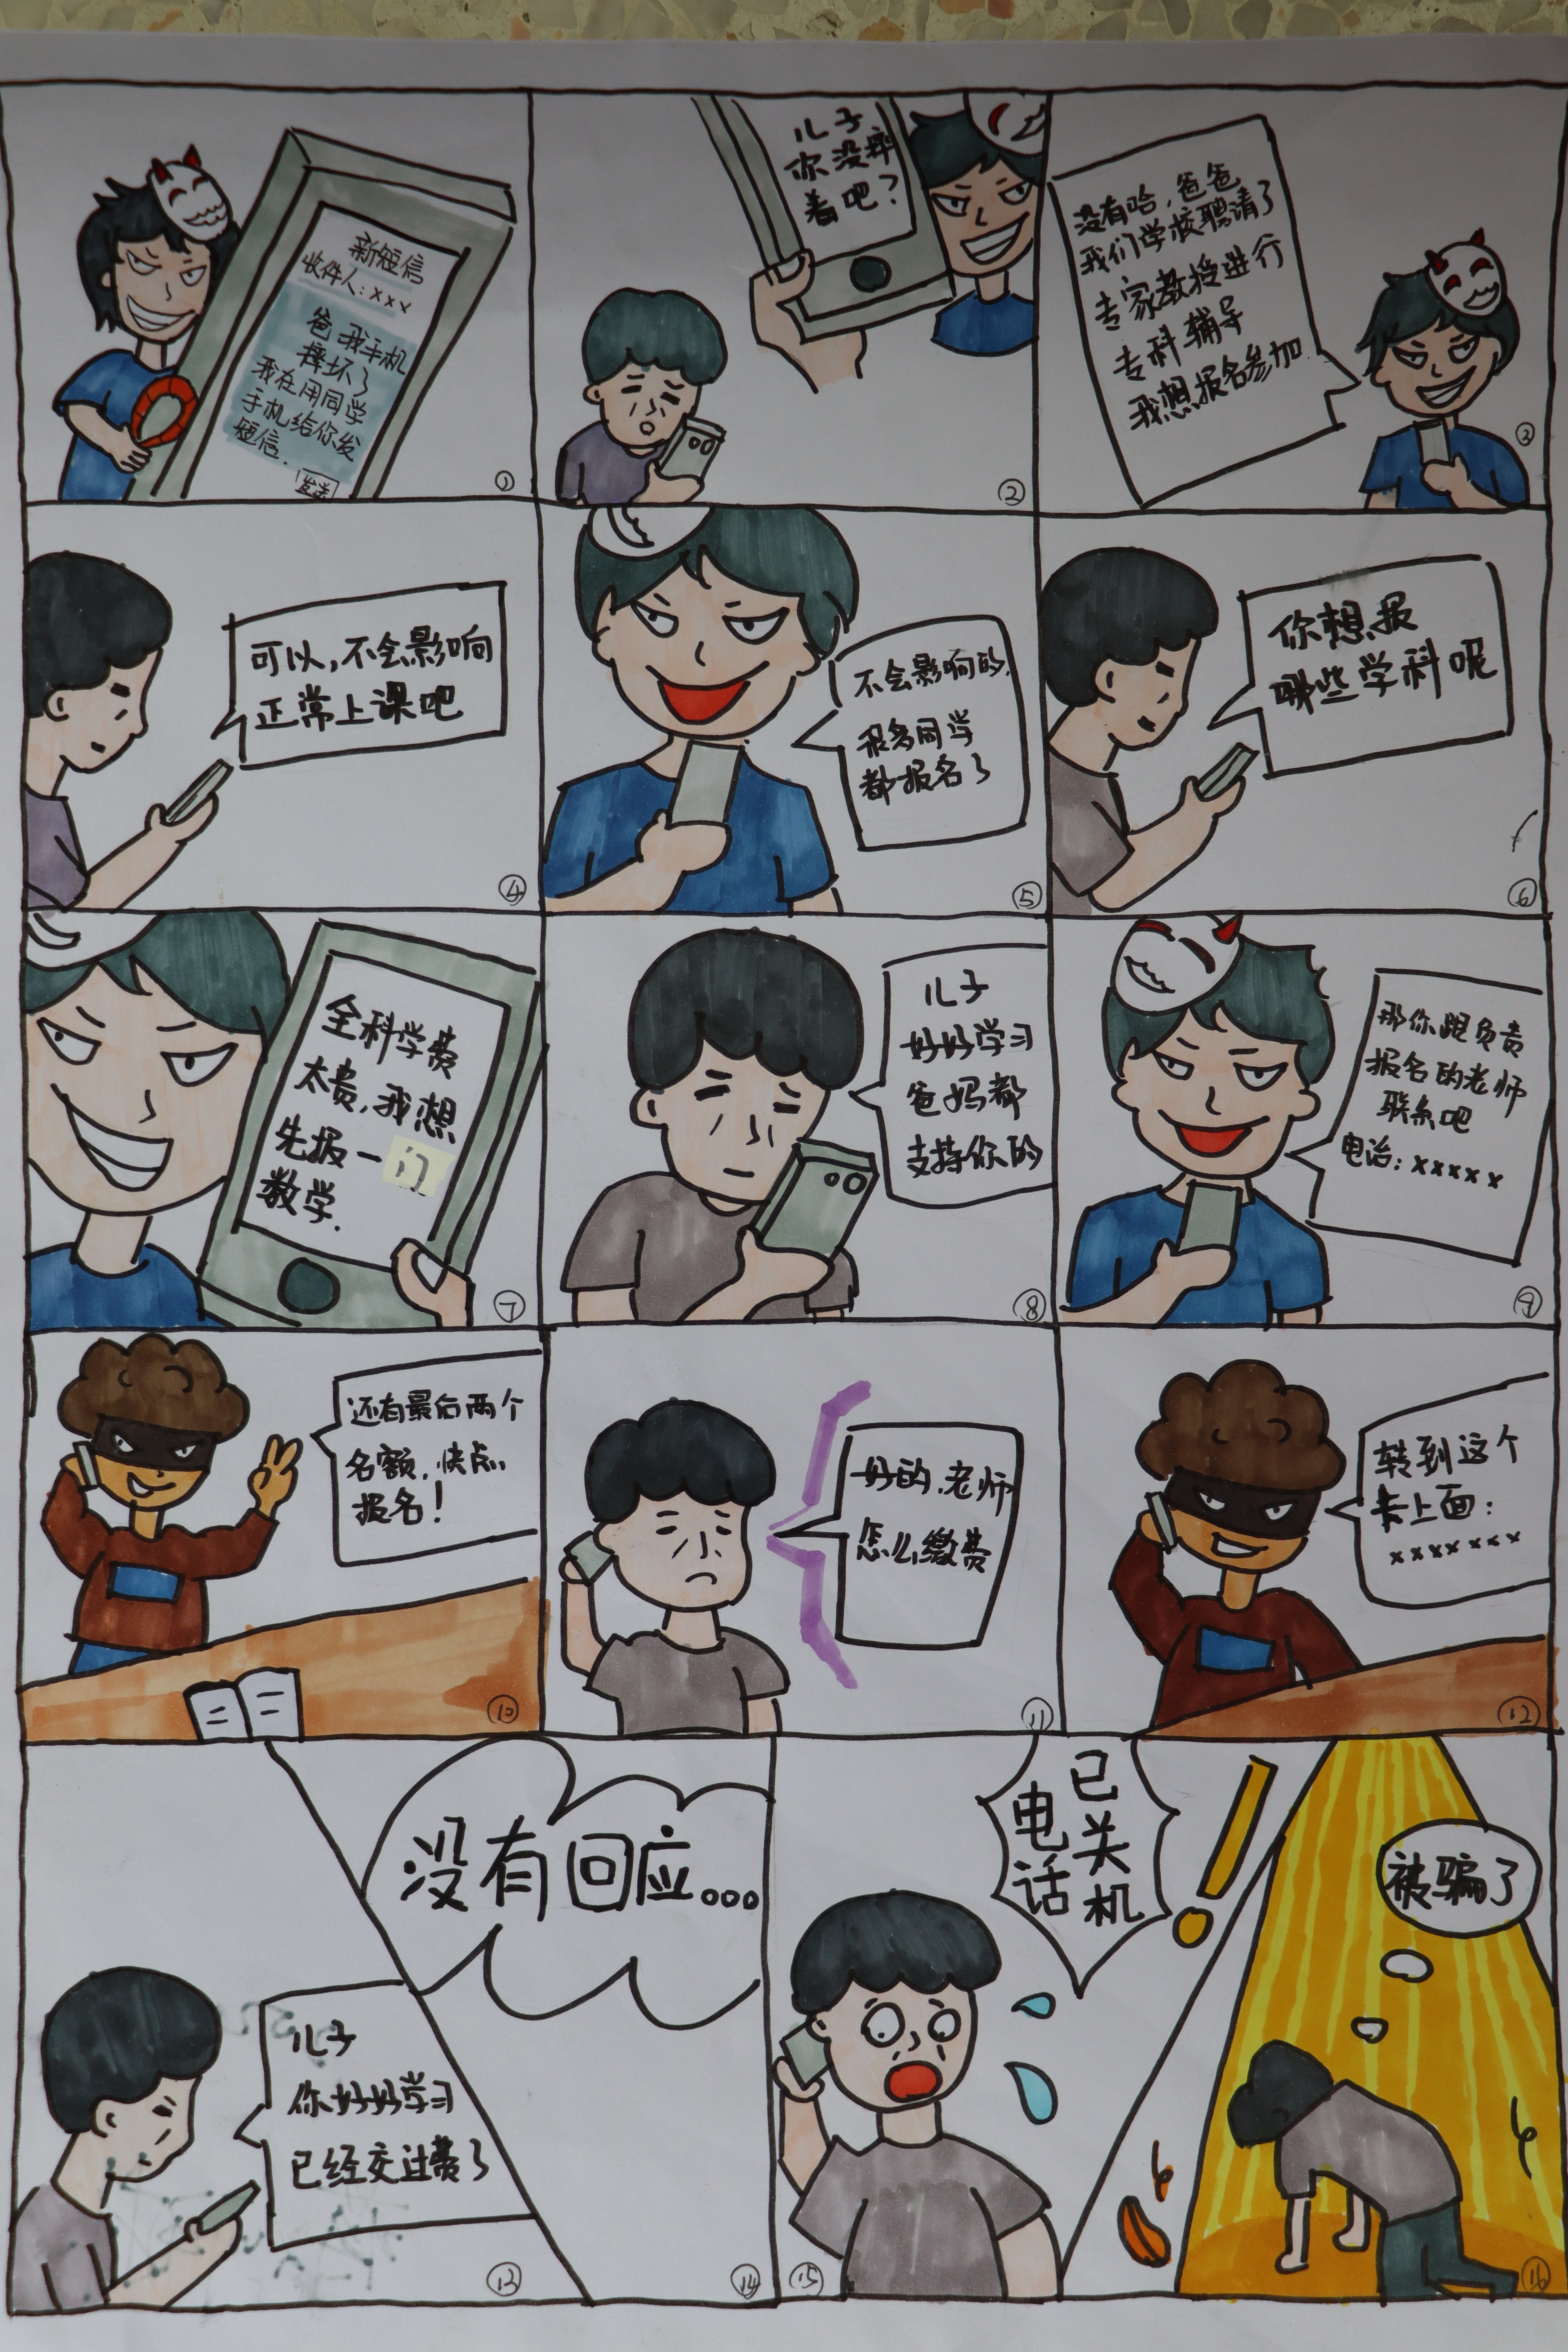 新短信
收件人:xxx
爸我手机
摔坏了
我在用同学
手机给你发
短信.
发送
①
儿子
你没摔
着吧?
②
没有哈,爸爸
我们学校聘请了
专家教授进行
专科辅导
我想报名参加
③
可以,不会影响
正常上课吧
④
不会影响的.
很多同学
都报名了
⑤
你想报
哪些学科呢
⑥
全科学费
太贵,我想
先报一门
数学.
⑦
儿子
好好学习
爸妈都
支持你的
⑧
那你跟负责
报名的老师
联系吧
电话:xxxxx
⑨
还有最后两个
名额,快点
报名!
⑩
好的,老师
怎么缴费
⑪
转到这个
卡上面:
xxxxxxx
⑫
儿子
你好好学习
已经交过费了
⑬
没有回应...
⑭
已关机
电话
!
⑮
被骗了
⑯